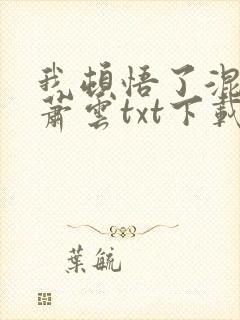 我頓悟了混
蕭雲txt下載
葉毓